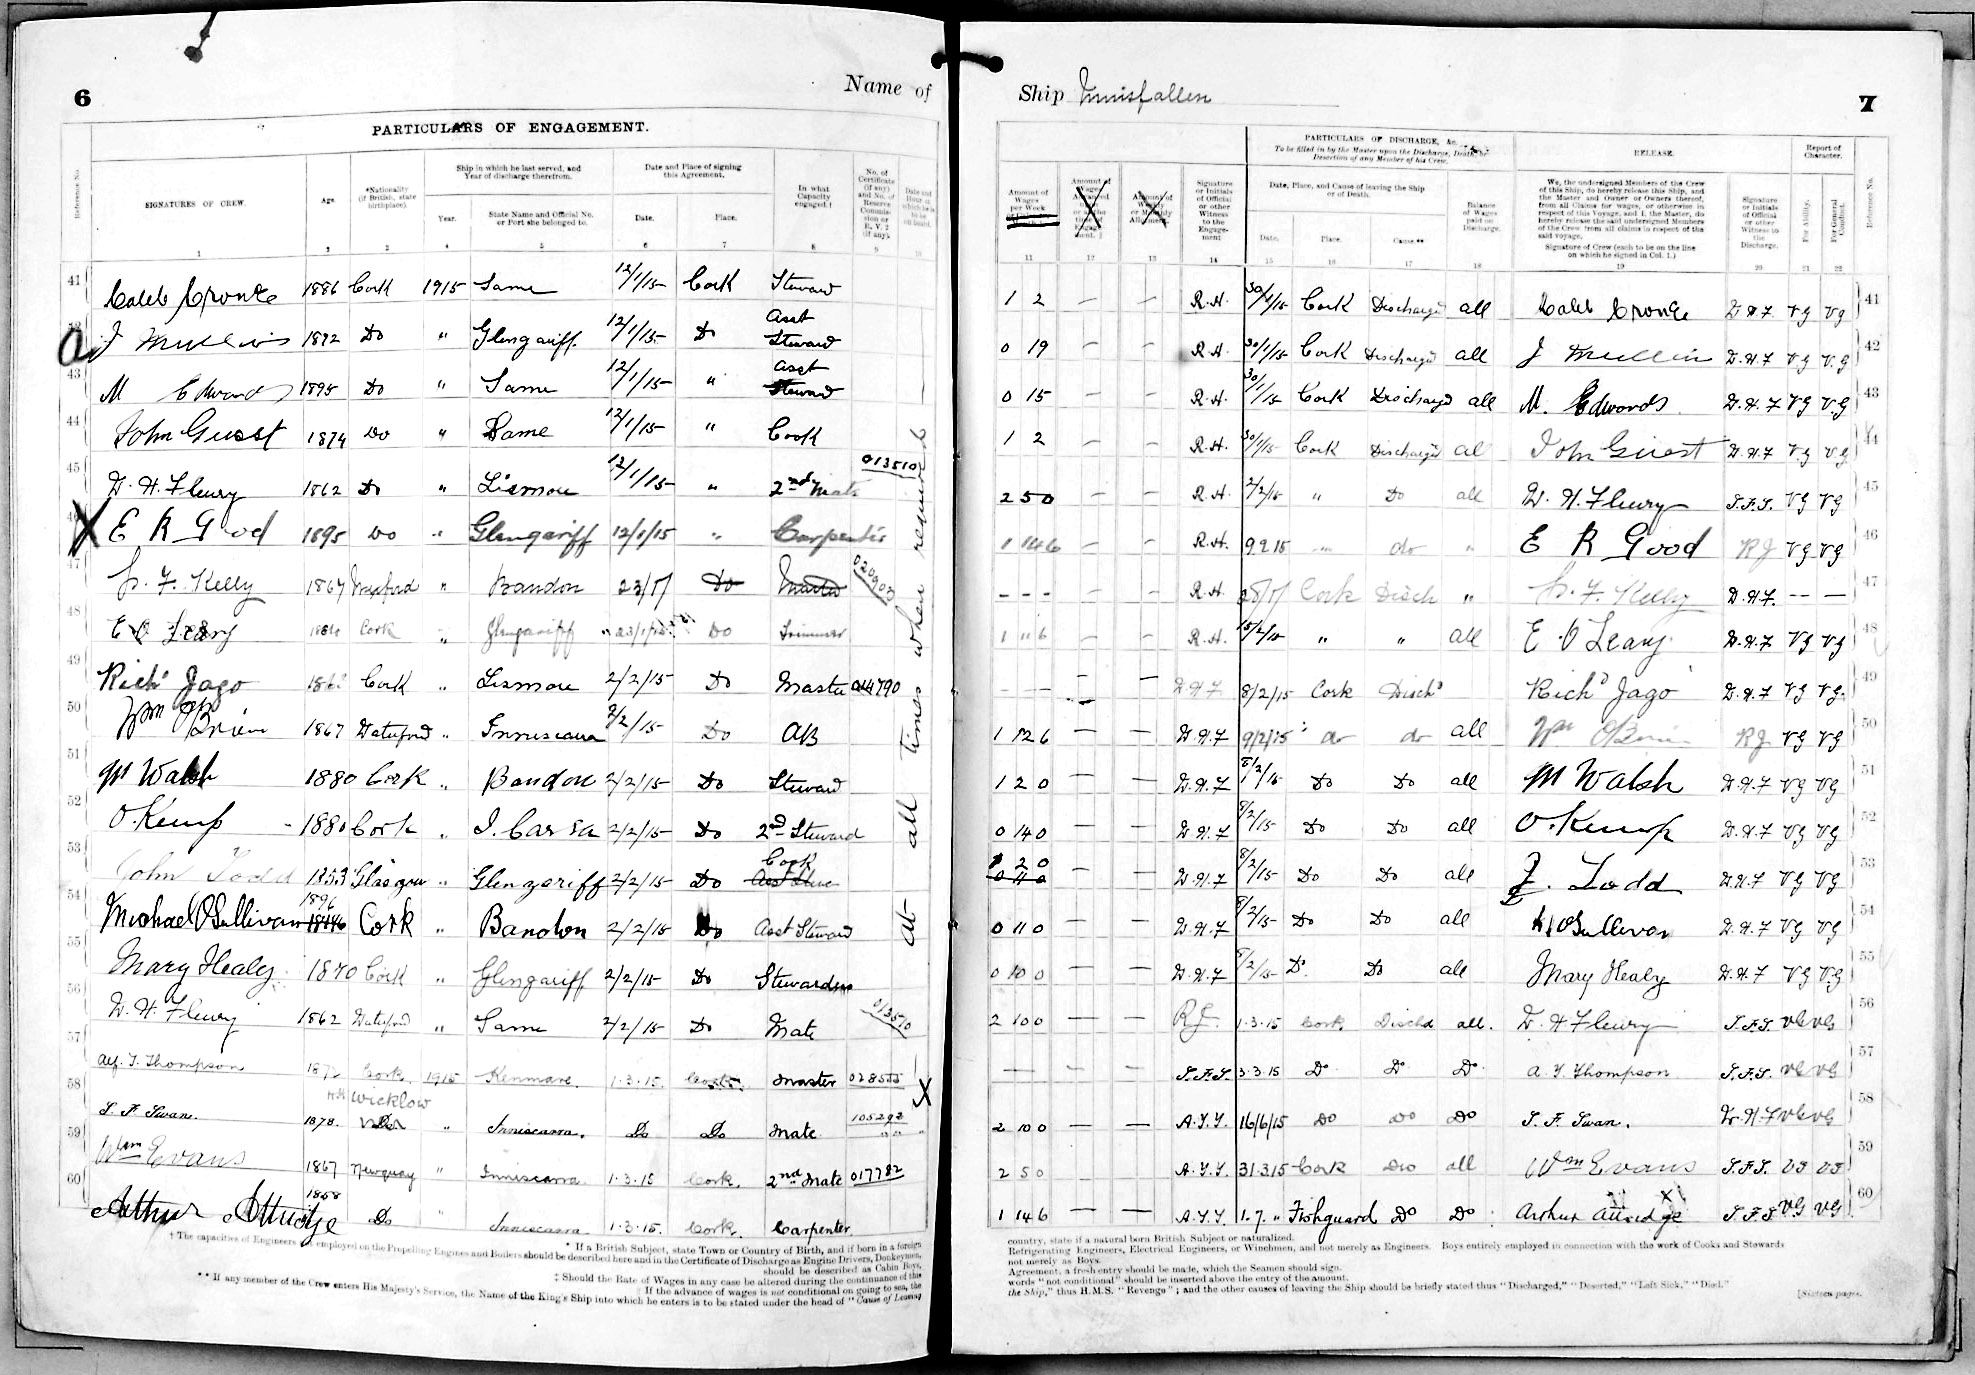 6
Name of
PARTICULARS OF ENGAGEMENT.
Reference No.
SIGNATURES OF CREW
Age.
*Nationality (if British, state birthplace).
Ship in which he last served, and Year of discharge therefrom.
Year.
State Name and Official No. or Port she belonged to.
Date and Place of signing this Agreement.
Date.
Place.
In what Capacity engaged.†
No. of Certificate (if any) and No. of Reserve Commission or R.V.2 (if any).
1 2 3 4 5 6 7 8 9 10
41 Caleb Cronke 1886 Cork 1915 Same 12/1/15 Cork Steward
J Mullins 1872 Do " Glengariff 12/1/15 Do Asst Steward
43 M Edwards 1895 Do " Same 12/1/15 " Asst Steward
44 John Guest 1874 Do " Same 12/1/15 " Cook
45 D. H. Fleury 1862 Do " Lismore 12/1/15 " 2nd Mate 013510
46 X E R Good 1895 Do " Glengariff 12/1/15 " Carpenter
47 Kelly 1867 Wexford " Bandon 23/1/ Do Master 020903
48 E O Leary Cork " Glengariff " 23/1/15 Do Trimmer
49 Richd Jago Cork " Lismore 2/2/15 Do Master 014790
50 Wm O'Brien 1867 Waterford " Inniscarra 2/2/15 Do AB
51 M Walsh 1880 Cork " Bandon 2/2/15 Do Steward
52 O. Kemp 1880 Cork " 2/2/15 Do 2nd Steward
53 John Todd 1853 Glasgow " Glengariff 2/2/15 Do Cook
54 Michael O'Sullivan 1896 Cork " Bandon 2/2/15 Do Asst Steward
55 Mary Healy 1870 Cork " Glengariff 2/2/15 Do Stewardess
56 D. H. Fleury 1862 Waterford " Same 2/2/15 Do Mate 013510
57 Alf. T. Thompson Cork 1915 Kenmare. 1.3.15. Cork. Master
58 S. F. Swan. 1878. Wicklow " Inniscarra. Do Do Mate 105292
59 Wm Evans 1867 Newquay " Inniscarra 1.3.15 Cork. 2nd Mate 017782
60 Arthur Attridge 1858 Do " Inniscarra 1.3.15. Cork. Carpenter
at all times when required
X
† The capacities of Engineers not employed on the Propelling Engines and Boilers should be described here and in the Certificate of Discharge as Engine Drivers, Donkeymen,
* If a British Subject, state Town or Country of Birth, and if born in a foreign
should be described as Cabin Boys,
‡ Should the Rate of Wages in any case be altered during the continuance of this
If the advance of wages is not conditional on going to sea, the
** If any member of the Crew enters His Majesty's Service, the Name of the King's Ship into which he enters is to be stated under the head of "Cause of Leaving
Ship Innisfallen
7
PARTICULARS OF DISCHARGE, &c.
To be filled in by the Master upon the Discharge, Death, or Desertion of any Member of his Crew.
RELEASE.
Report of Character.
Amount of Wages per Week
Signature or Initials of Official or other Witness to the Engagement
Date, Place, and Cause of leaving the Ship or of Death.
Date.
Place.
Cause.**
Balance of Wages paid on Discharge.
We, the undersigned Members of the Crew of this Ship, do hereby release this Ship, and the Master and Owner or Owners thereof, from all Claims for wages, or otherwise in respect of this Voyage, and I, the Master, do hereby release the said undersigned Members of the Crew from all claims in respect of the said voyage.
Signature of Crew (each to be on the line on which he signed in Col. 1.)
Signature or Initials of Official or other Witness to the Discharge.
For Ability.
For General Conduct.
Reference No.
11 12 13 14 15 16 17 18 19 20 21 22
1 2 – – R.H. 30/1/15 Cork Discharged all Caleb Cronke D H F VG VG 41
0 19 – – R.H. 30/1/15 Cork Discharged all J Mullin D.H.F VG V.G 42
0 15 – – R.H. 30/1/15 Cork Discharged all M. Edwards D.H.F VG V.G 43
1 2 – – R.H. 30/1/15 Cork Discharged all John Guest D.H.F VG VG 44
2 5 0 – – R.H. 2/2/15 " Do all D. H. Fleury S.F.S. VG VG 45
1 14 6 – – R.H. 9 2 15 " do " E R Good RJ VG VG 46
- - - R.H. Cork Disch " Kelly D.H.F. – – 47
R.H. 15/2/15 " " all E. O Leary D.H.F VG VG 48
- - - D.H.F 8/2/15 Cork Dischd Richd Jago D.H.F VG VG. 49
1 12 6 – – D.H.F 9/2/15 do do all Wm O'Brien RJ VG VG 50
1 2 0 – – D.H.F 8/2/15 Do Do all M Walsh D.H.F VG VG 51
0 14 0 – – D.H.F 8/2/15 Do Do all O. Kemp D.H.F VG VG 52
1 2 0 – – D.H.F 8/2/15 Do Do all J. Todd D.H.F VG VG 53
0 11 0 – – D.H.F 8/2/15 Do Do all M O'Sullivan D.H.F VG VG 54
0 10 0 – – D.H.F 8/2/15 Do Do all Mary Healy D.H.F VG V.G 55
2 10 0 – – RJ. 1.3.15 Cork Dischd all. D. H Fleury S.F.S. VG VG 56
– – – S.F.S. 3.3.15 Do Do Do A. T. Thompson S.F.S. VG VG 57
2 10 0 – – A.T.T. 16/6/15 Do Do Do S. F. Swan. D.H.F VG VG 58
2 5 0 – – A.T.T. 31.3.15 Cork Do all Wm Evans S.F.S. VG VG 59
1 14 6 – – A.T.T. 1.7. " Fishguard Do Do Arthur Attridge S.F.S VG VG 60
country, state if a natural born British Subject or naturalized.
Refrigerating Engineers, Electrical Engineers, or Winchmen, and not merely as Engineers. Boys entirely employed in connection with the work of Cooks and Stewards
not merely as Boys.
Agreement, a fresh entry should be made, which the Seamen should sign.
words "not conditional" should be inserted above the entry of the amount.
the Ship," thus H.M.S. "Revenge"; and the other causes of leaving the Ship should be briefly stated thus "Discharged," "Deserted," "Left Sick," "Died."
[Sixteen pages.